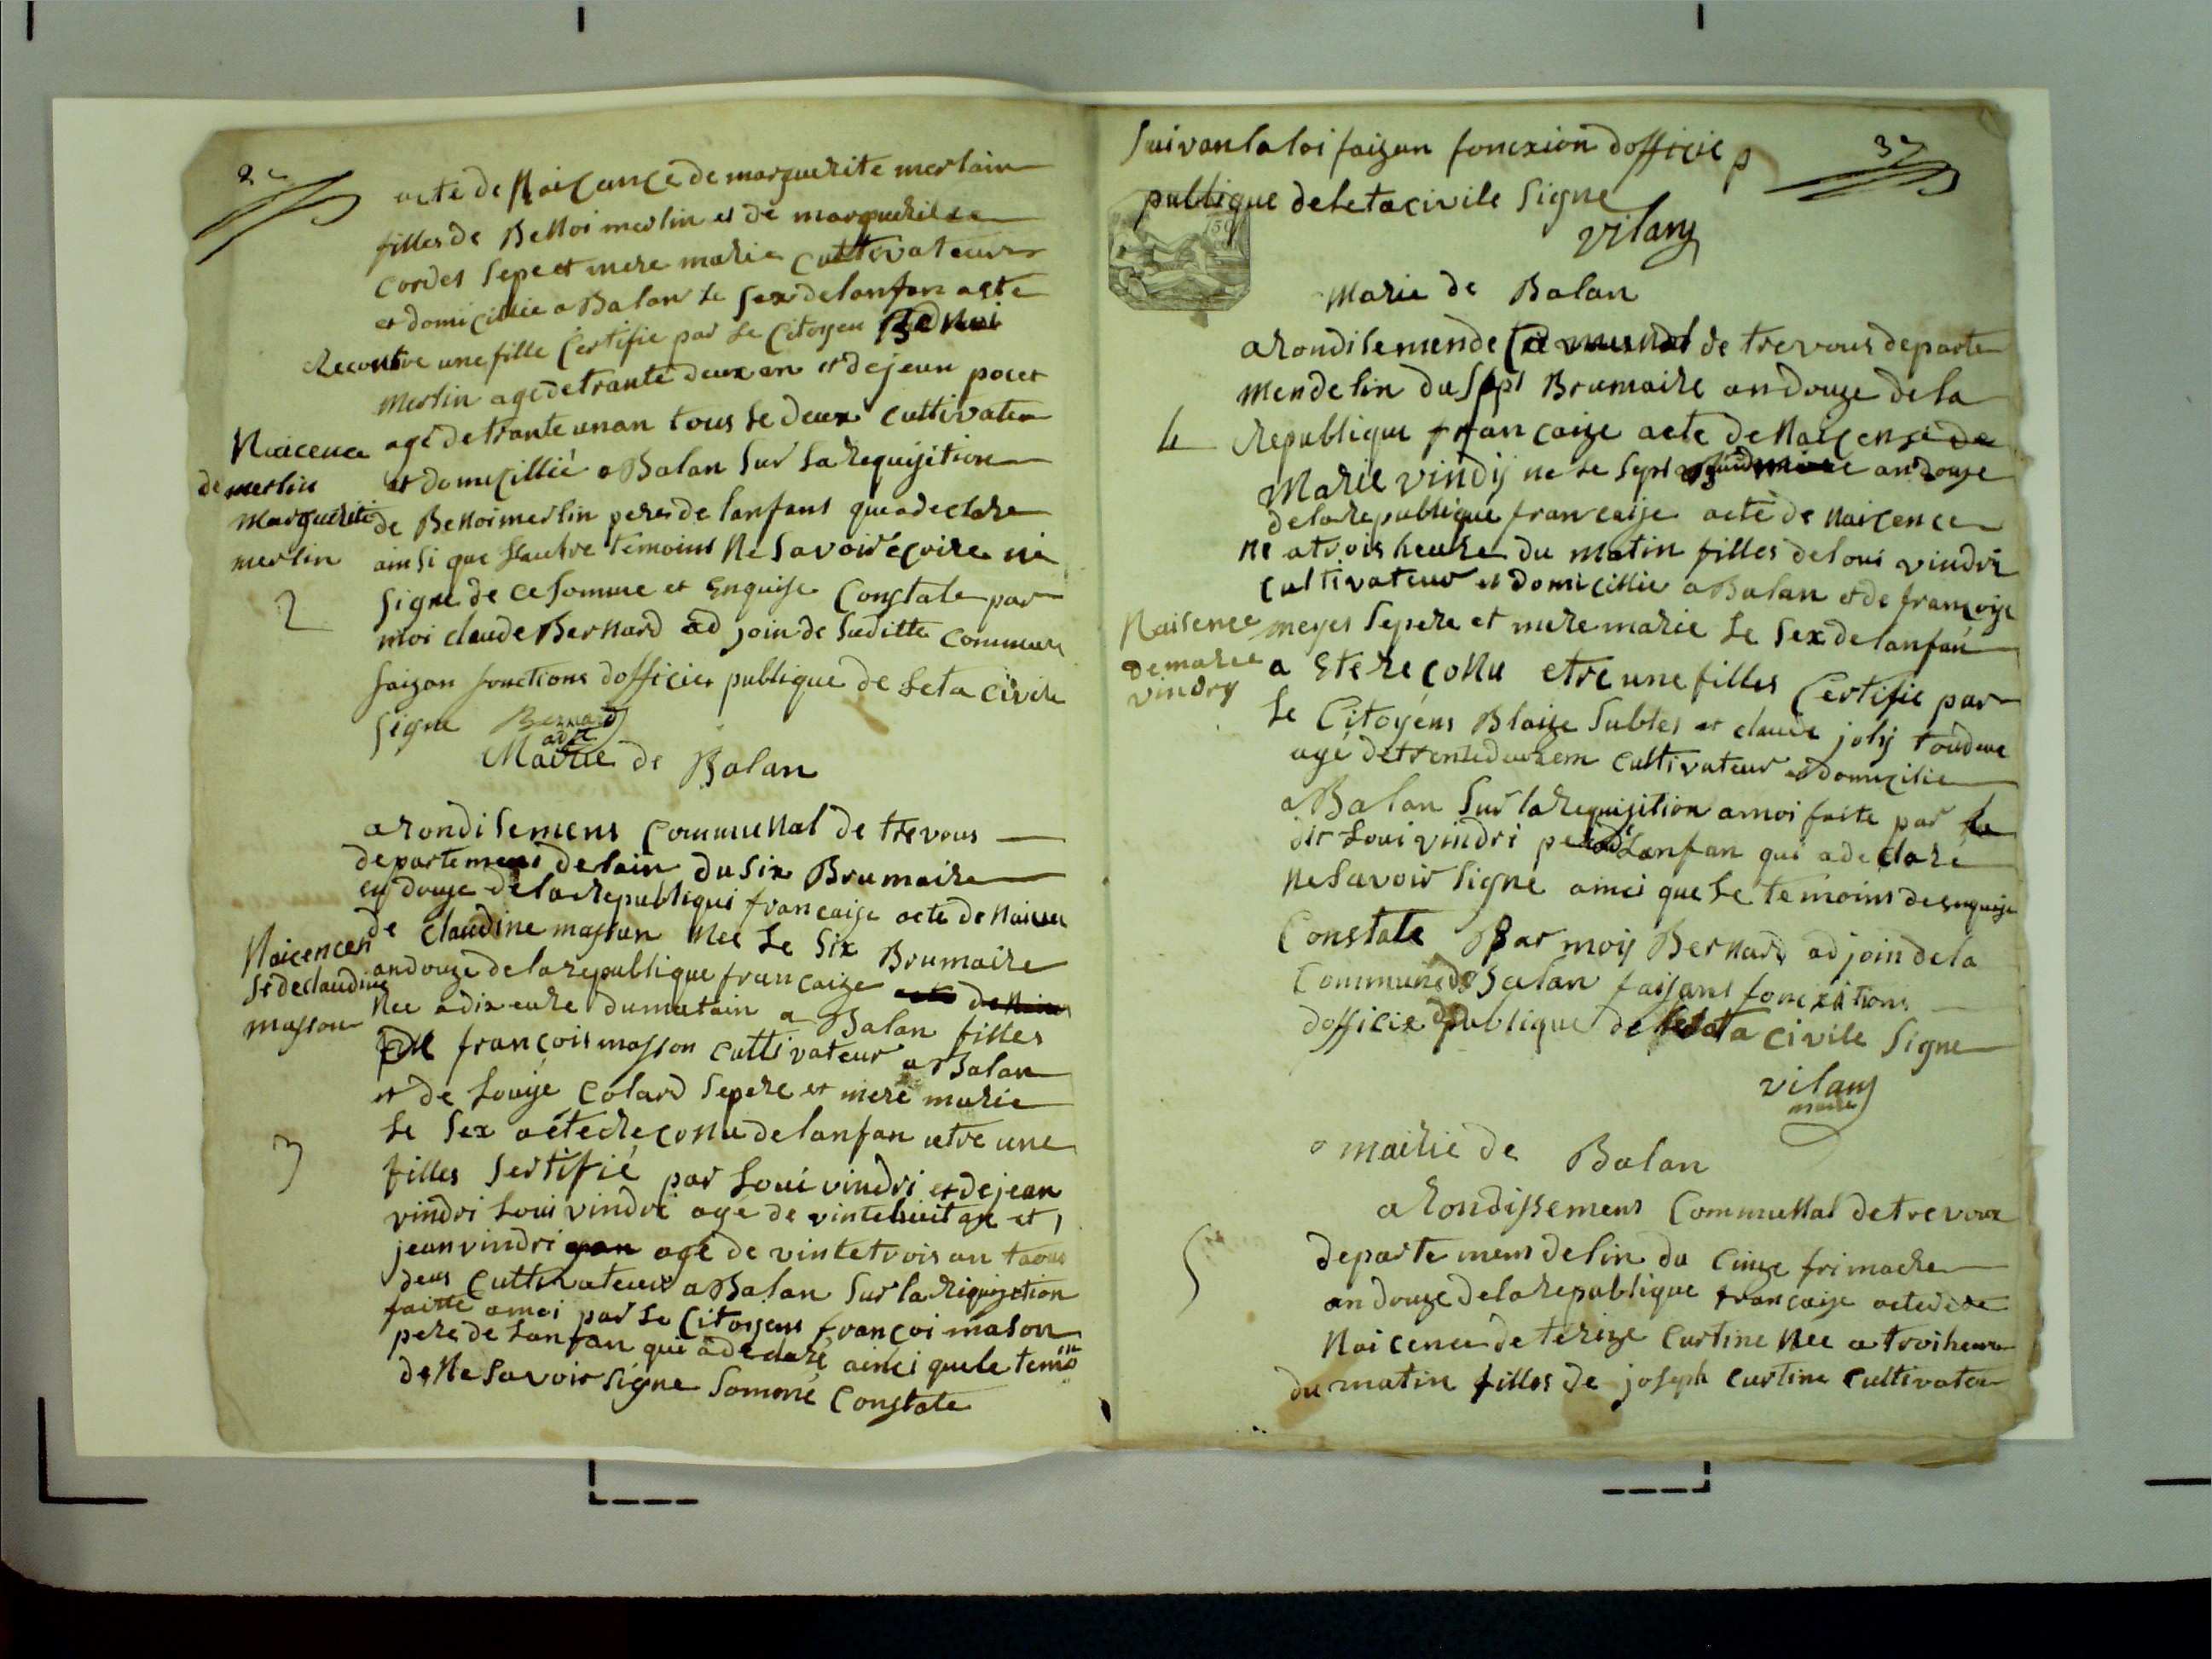 2
acte de Naicance de marguerite merlain
filles de Benoi merlin et de marguerite
cordes se pe et mere marie cultivateur
et domicillie a Balan le sex de lanfan aete
Reconue une fille Certifie par le Citoyen Benoi
merlin age de trante deux an et de jean pocet
agé de trante unan tous le deux cultivateu
et domicillié a Balan sur la requisition
de Benoi merlin pere de lanfans qui a declare
ainsi que lautre temoins Ne savoir écrire ni
signe de ce somme et Enquise Constate par
moi claude Bernard ad join de laditte commune
faizan fonctions dofficier publique de leta civile
signe Bernard
adjt
Naicence
de merlin
marguerite
merlin
2
Mairie de Balan
arondisemens Communal de trevous
departemens de lain du six Brumaire
en douze de la republiqui francaise acte de Naicen
de claudine masson Nee le six Brumaire
an douze de la republique francaize acte de Nai
Nee a dix eure du matain a Balan filles
de françois masson cultivateur a Balan
et de Louise Colard se pere et mere marie
le sex a été reconu de lanfan etre une
filles sertifié par Loui vindri et de jean
vindri Loui vindri agé de vintehuit an et
jean vindri agé de vintetrois an taous
deus Cultivateur a Balan sur la requisition
faitte a moi par le Citoyens françoi mason
pere de lanfan qui a declaré ainci que le temo
de Ne savoir signe sommé Constate
Naicencen
de claudine
masson
3
3
suivan la loi faizan fonexion dofficie p
publique de leta civile signe
vilany
Marie de Balan
arondisemende de trevous departe
men de lin du sept Brumaire an douze de la
4 Republique françaize acte de Naicense de
Marie vindy ne le sept an douze
de la republique francaise acte de naicence
Ne a trois heure du matin filles de loui vindri
Cultivateur et domicillie a Balan et de françoise
meyes se pere et mere marie le sex de lanfan
a Ete reconu etre une filles Certifie par
le Citoyens Blaize Subtes et claude joly toudeue
agé de trente deuxem cultivateur et domicilie
a Balan sur la requisition a moi faite par le
dit Loui vindri pere de Lanfan qui a declaré
Ne savoir signe ainci que le temoins de enquise
Constate Par moy Bernard ad join de la
Commune de Balan faisans fonexitions
dofficie publique de leta civile signe
vilany
maire
Naisence
de marie
vindry
mairie de Balan
arondissemens Communal de trevoux
departe mens de lin du cinze frimaire
an douze de la republique francaise acte de
Naicence de terize Curtine Nee a troi heure
du matin filles de joseph Curtine Cultivateu
5